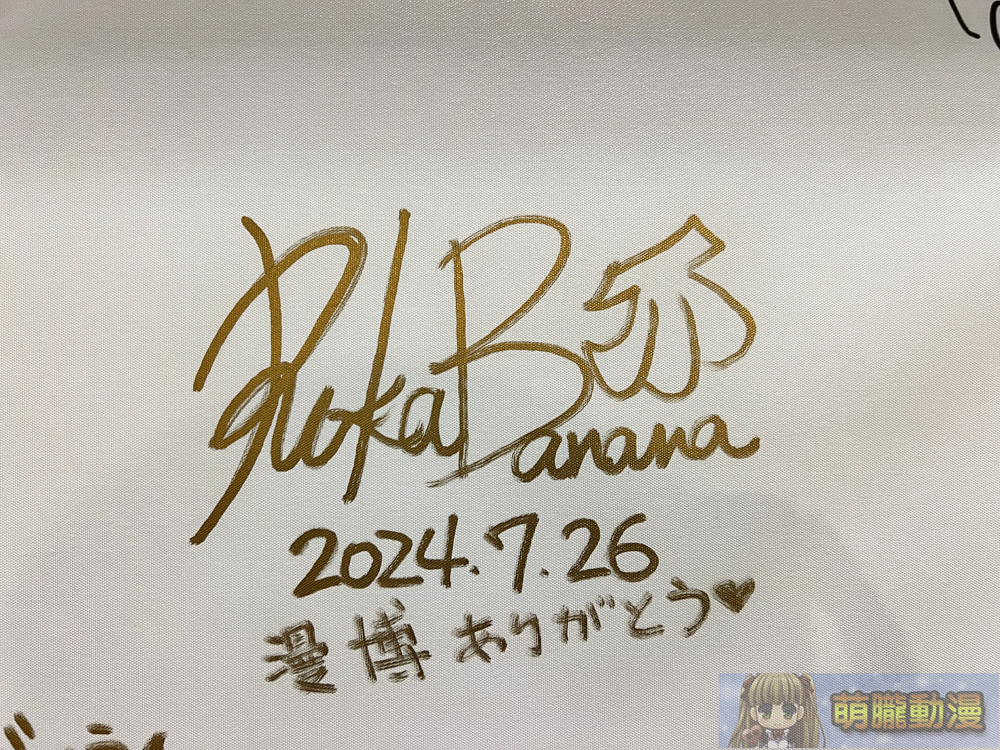 Banana
2024.7.26
漫博ありがとう♥
萌朧動漫